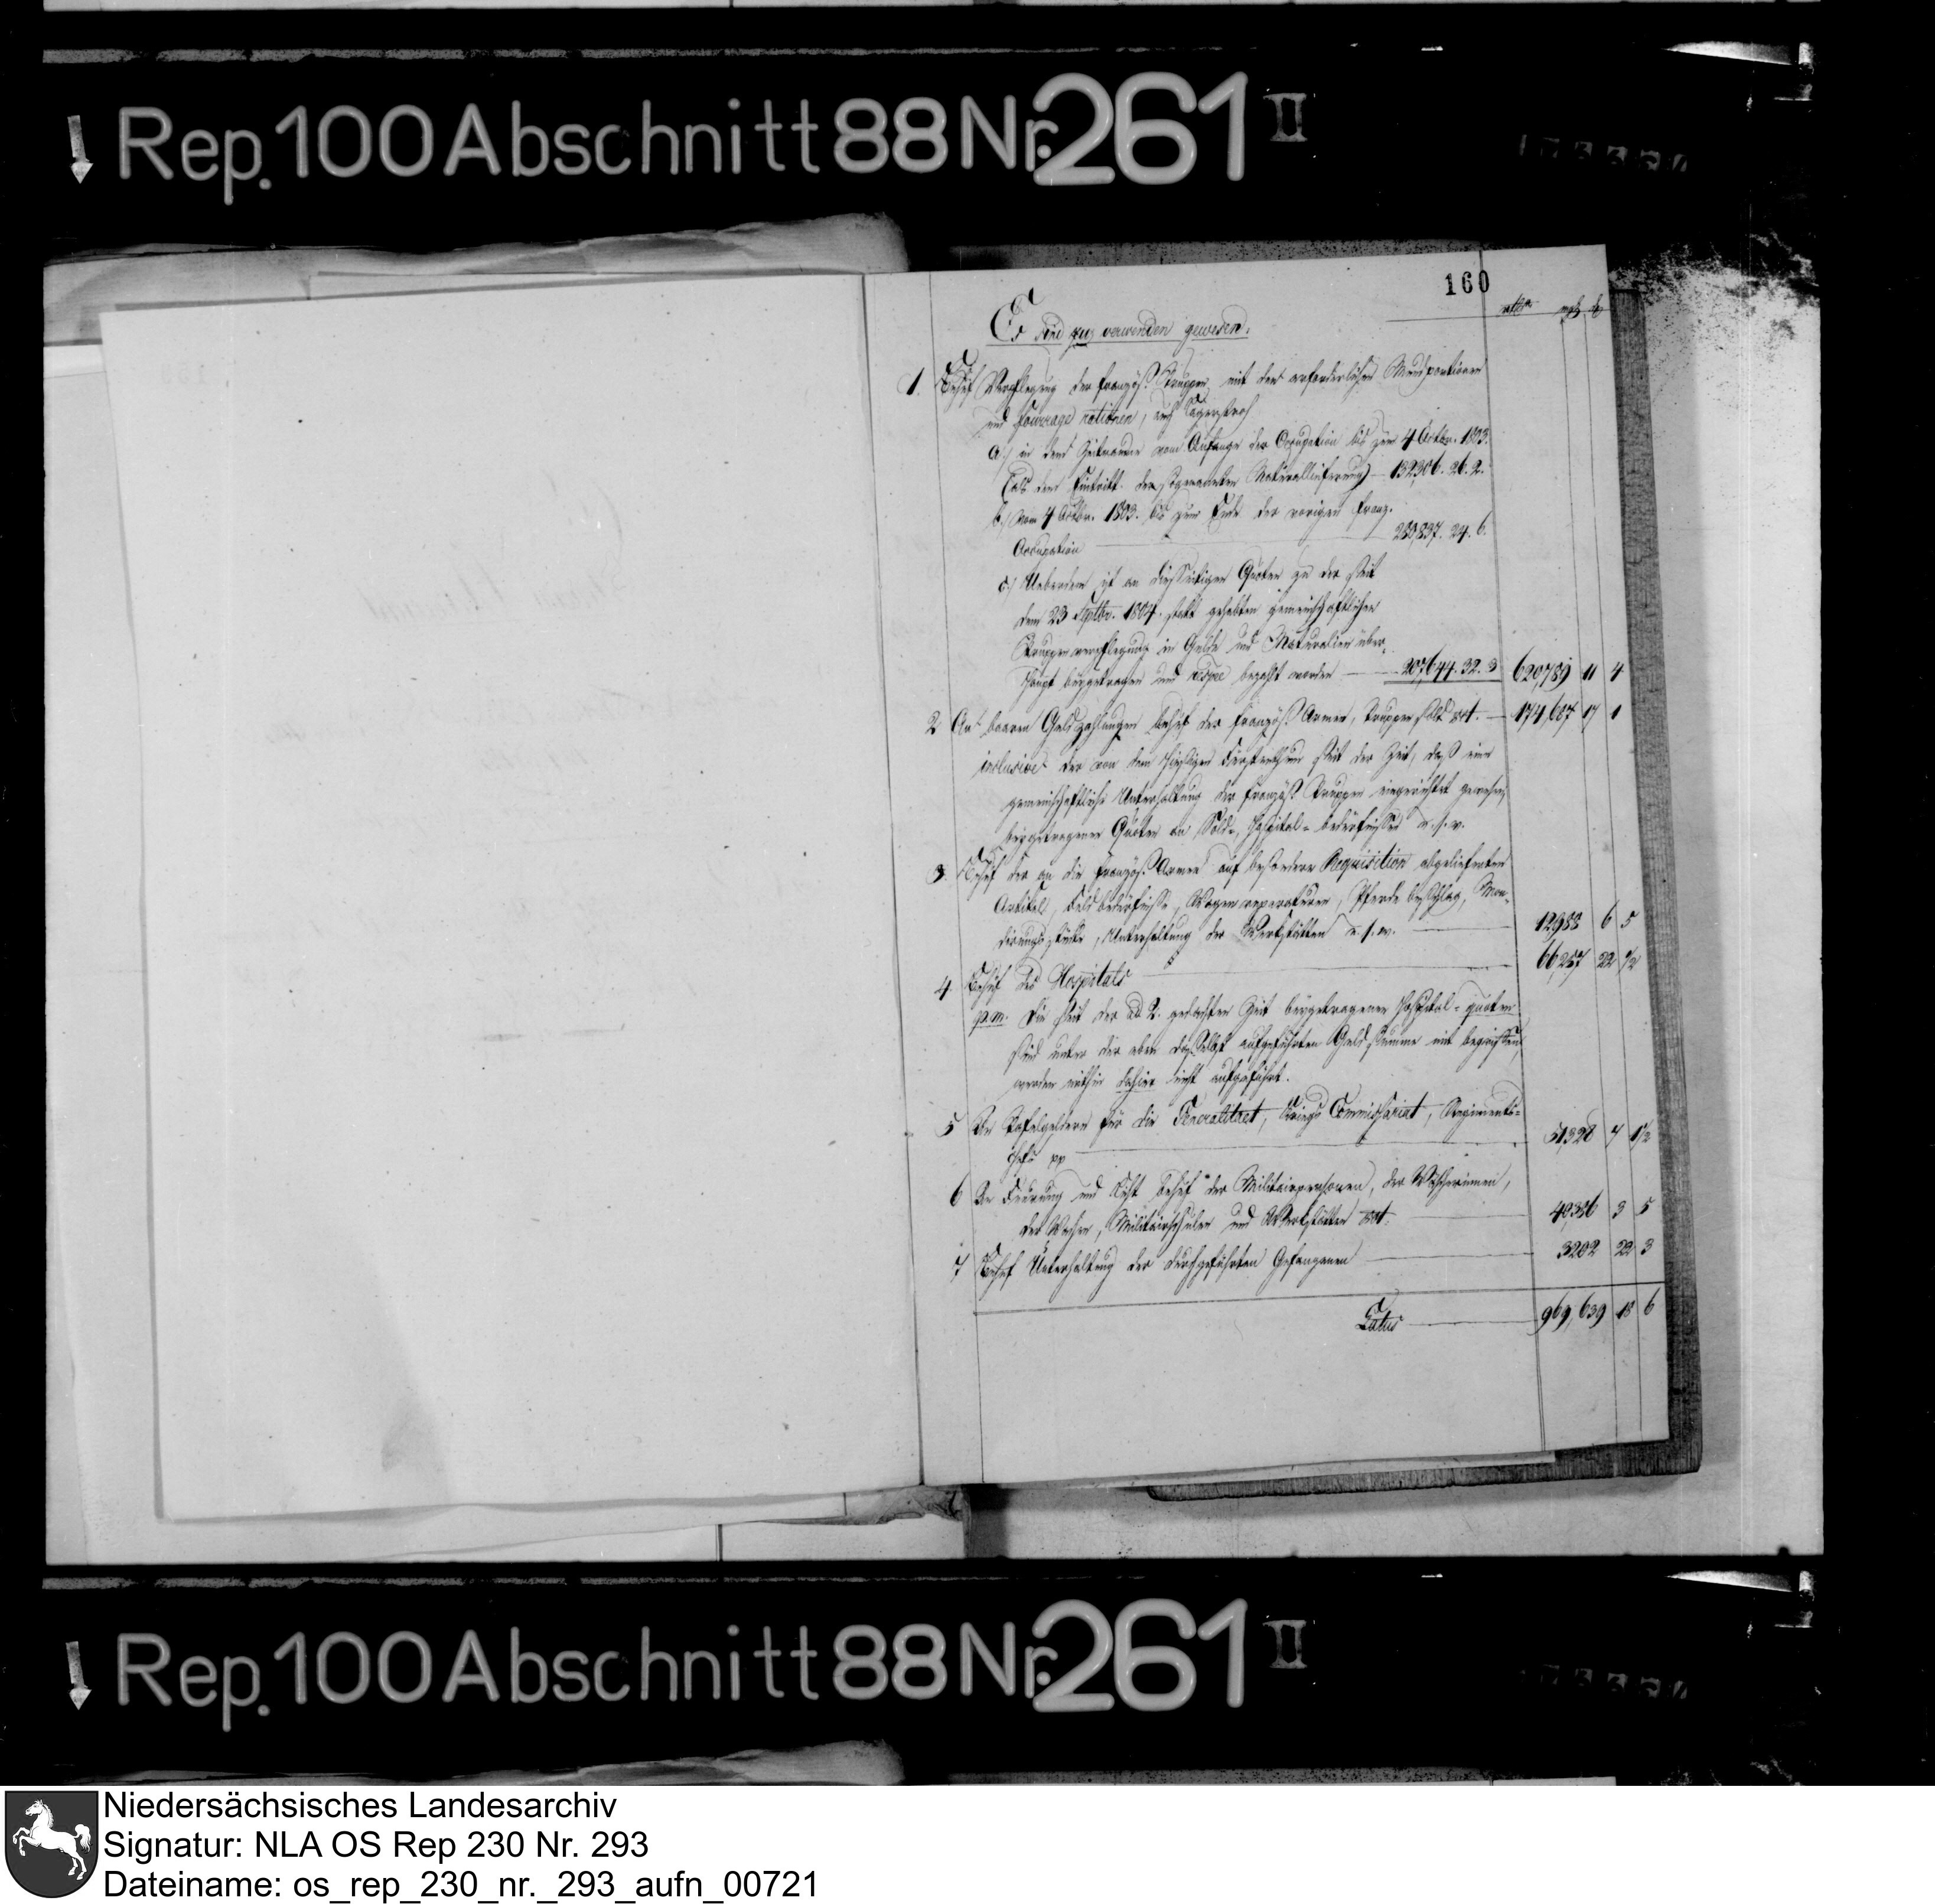 Rep. 100 Abschnitt 88 Nr. 261 II
160
rthr mgl d
Es sind zu verwenden gewesen.
1. Behuf Verpflegung der französ. Truppen mit den erforderlichen Mundportionen
und Fourrage rationen, auch Lagerstroh
a) in dem Zeitraume vom Anfange der Occupation bis zum 4 Octbr. 1803.
(als dem Eintritt der sogenannten Naturallieferung) 132,306. 26. 2.
b) vom 4 Octbr. 1803. bis zum Ende der vorigen franz.
Occupation 280,837. 24. 6.
c) Ueberdem ist an diesseitigen Quoten zu der seit
dem 23 Septbr. 1804. statt gehabten gemeinschaftlichen
Truppenverpflegung in Gelde und Naturalien über-
haupt beygetragen und bezahlt worden 207,644. 32. 3 620,789 11 4
2 An baaren Geldzahlungen behuf der französ. Armee, Truppen sold 174,687 17 1
inclusive der von dem hiesigen Fürstenthum seit der Zeit, daß eine
gemeinschaftliche Unterhaltung der französ. Truppen eingerichtet gewesen,
beygetragenen Quoten an Sold, Hospital-bedürfnissen u. s. w.
3. Behuf der an die französ. Armee auf besondere Requisition abgelieferten
Artikel, Feldbedürfnisse, Wagen reperaturen, Pferde beschlag, Mon-
dirungs stücke, Unterhaltung der Werkstätten u. s. w. 12,988 6 5
4. Behuf des Hospitals 66,257 22 1/2
p.m. Die seit der ad 2. gedachten Zeit beygetragenen Hospital-quoten
sind unter der eben daselbst aufgeführten Geld summe mit begriffen
werden mithin dahier nicht aufgeführt.
5 An Tafelgeldern für die Generalitaet, Kriegs Commissariat, Regiments-
chefs pp 51,328 7 1 1/2
6 An Feurung und Licht behuf der Militairpersonen, der Wäscherinnen,
der Wachen, Militairschulen und Werkstätten 40,386 3 5
7 Behuf Unterhaltung der durchgeführten Gefangenen 3202 22 3
Latus 969,639 18 6
Rep. 100 Abschnitt 88 Nr. 261 II
Niedersächsisches Landesarchiv
Signatur: NLA OS Rep 230 Nr. 293
Dateiname: os_rep_230_nr._293_aufn_00721